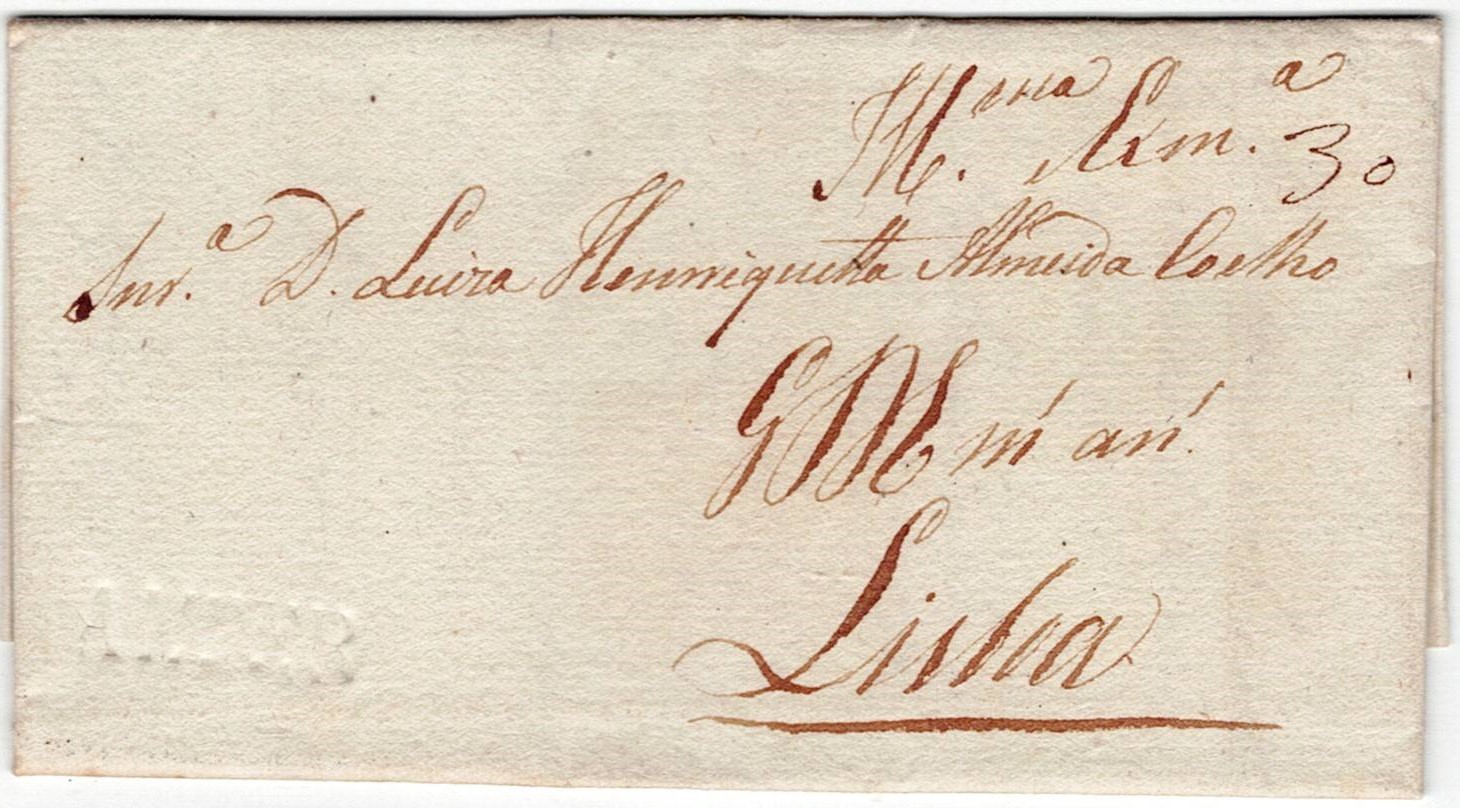 Ill.ma Exm.a
30
Snr.a D. Luiza Henriqueta Almeida Coelho
G.de m.s an.s
Lisboa